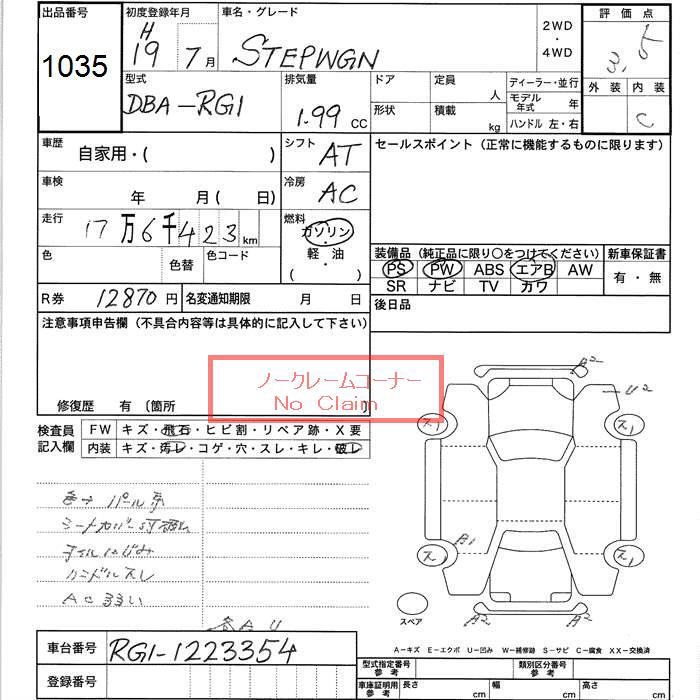 出品番号
1035
初度登録年月
H
19 7月
車名・グレード
STEPWGN
2WD
・
4WD
評価点
3.5
外装 内装
C
型式
DBA-RG1
排気量
1.99 CC
ドア
定員
人
形状
積載
kg
ディーラー・並行
モデル年式 年
ハンドル 左・右
車歴
自家用・( )
シフト
AT
セールスポイント(正常に機能するものに限ります)
車検
年 月( 日)
冷房
AC
走行
17万6千423km
燃料
ガソリン・
軽・油
( ・ )
色
色替
色コード
装備品(純正品に限り〇をつけてください)
PS PW ABS エアB AW
SR ナビ TV カワ
新車保証書
有・無
R券
12870円
名変通知期限
月 日
後日品
注意事項申告欄(不具合内容等は具体的に記入して下さい)
修復歴 有 〔箇所
ノークレームコーナー
No Claim
検査員
記入欄
FW キズ・飛石・ヒビ割・リペア跡・X要
内装 キズ・汚レ・コゲ・穴・スレ・キレ・破レ
パール系
シートカバー
オイルにじみ
カミドルスレ
AC弱い
各AU
A2
U2
ス1
ス1
B1
ス1
ス1
A2
A2
スペア
A-キズ E-エクボ U-凹み W-補修跡 S-サビ C-腐食 XX-交換済
車台番号
RG1-1223354
登録番号
型式指定番号
参考
類別区分番号
参考
車庫証明用
参考
長さ
cm
幅
cm
高さ
cm